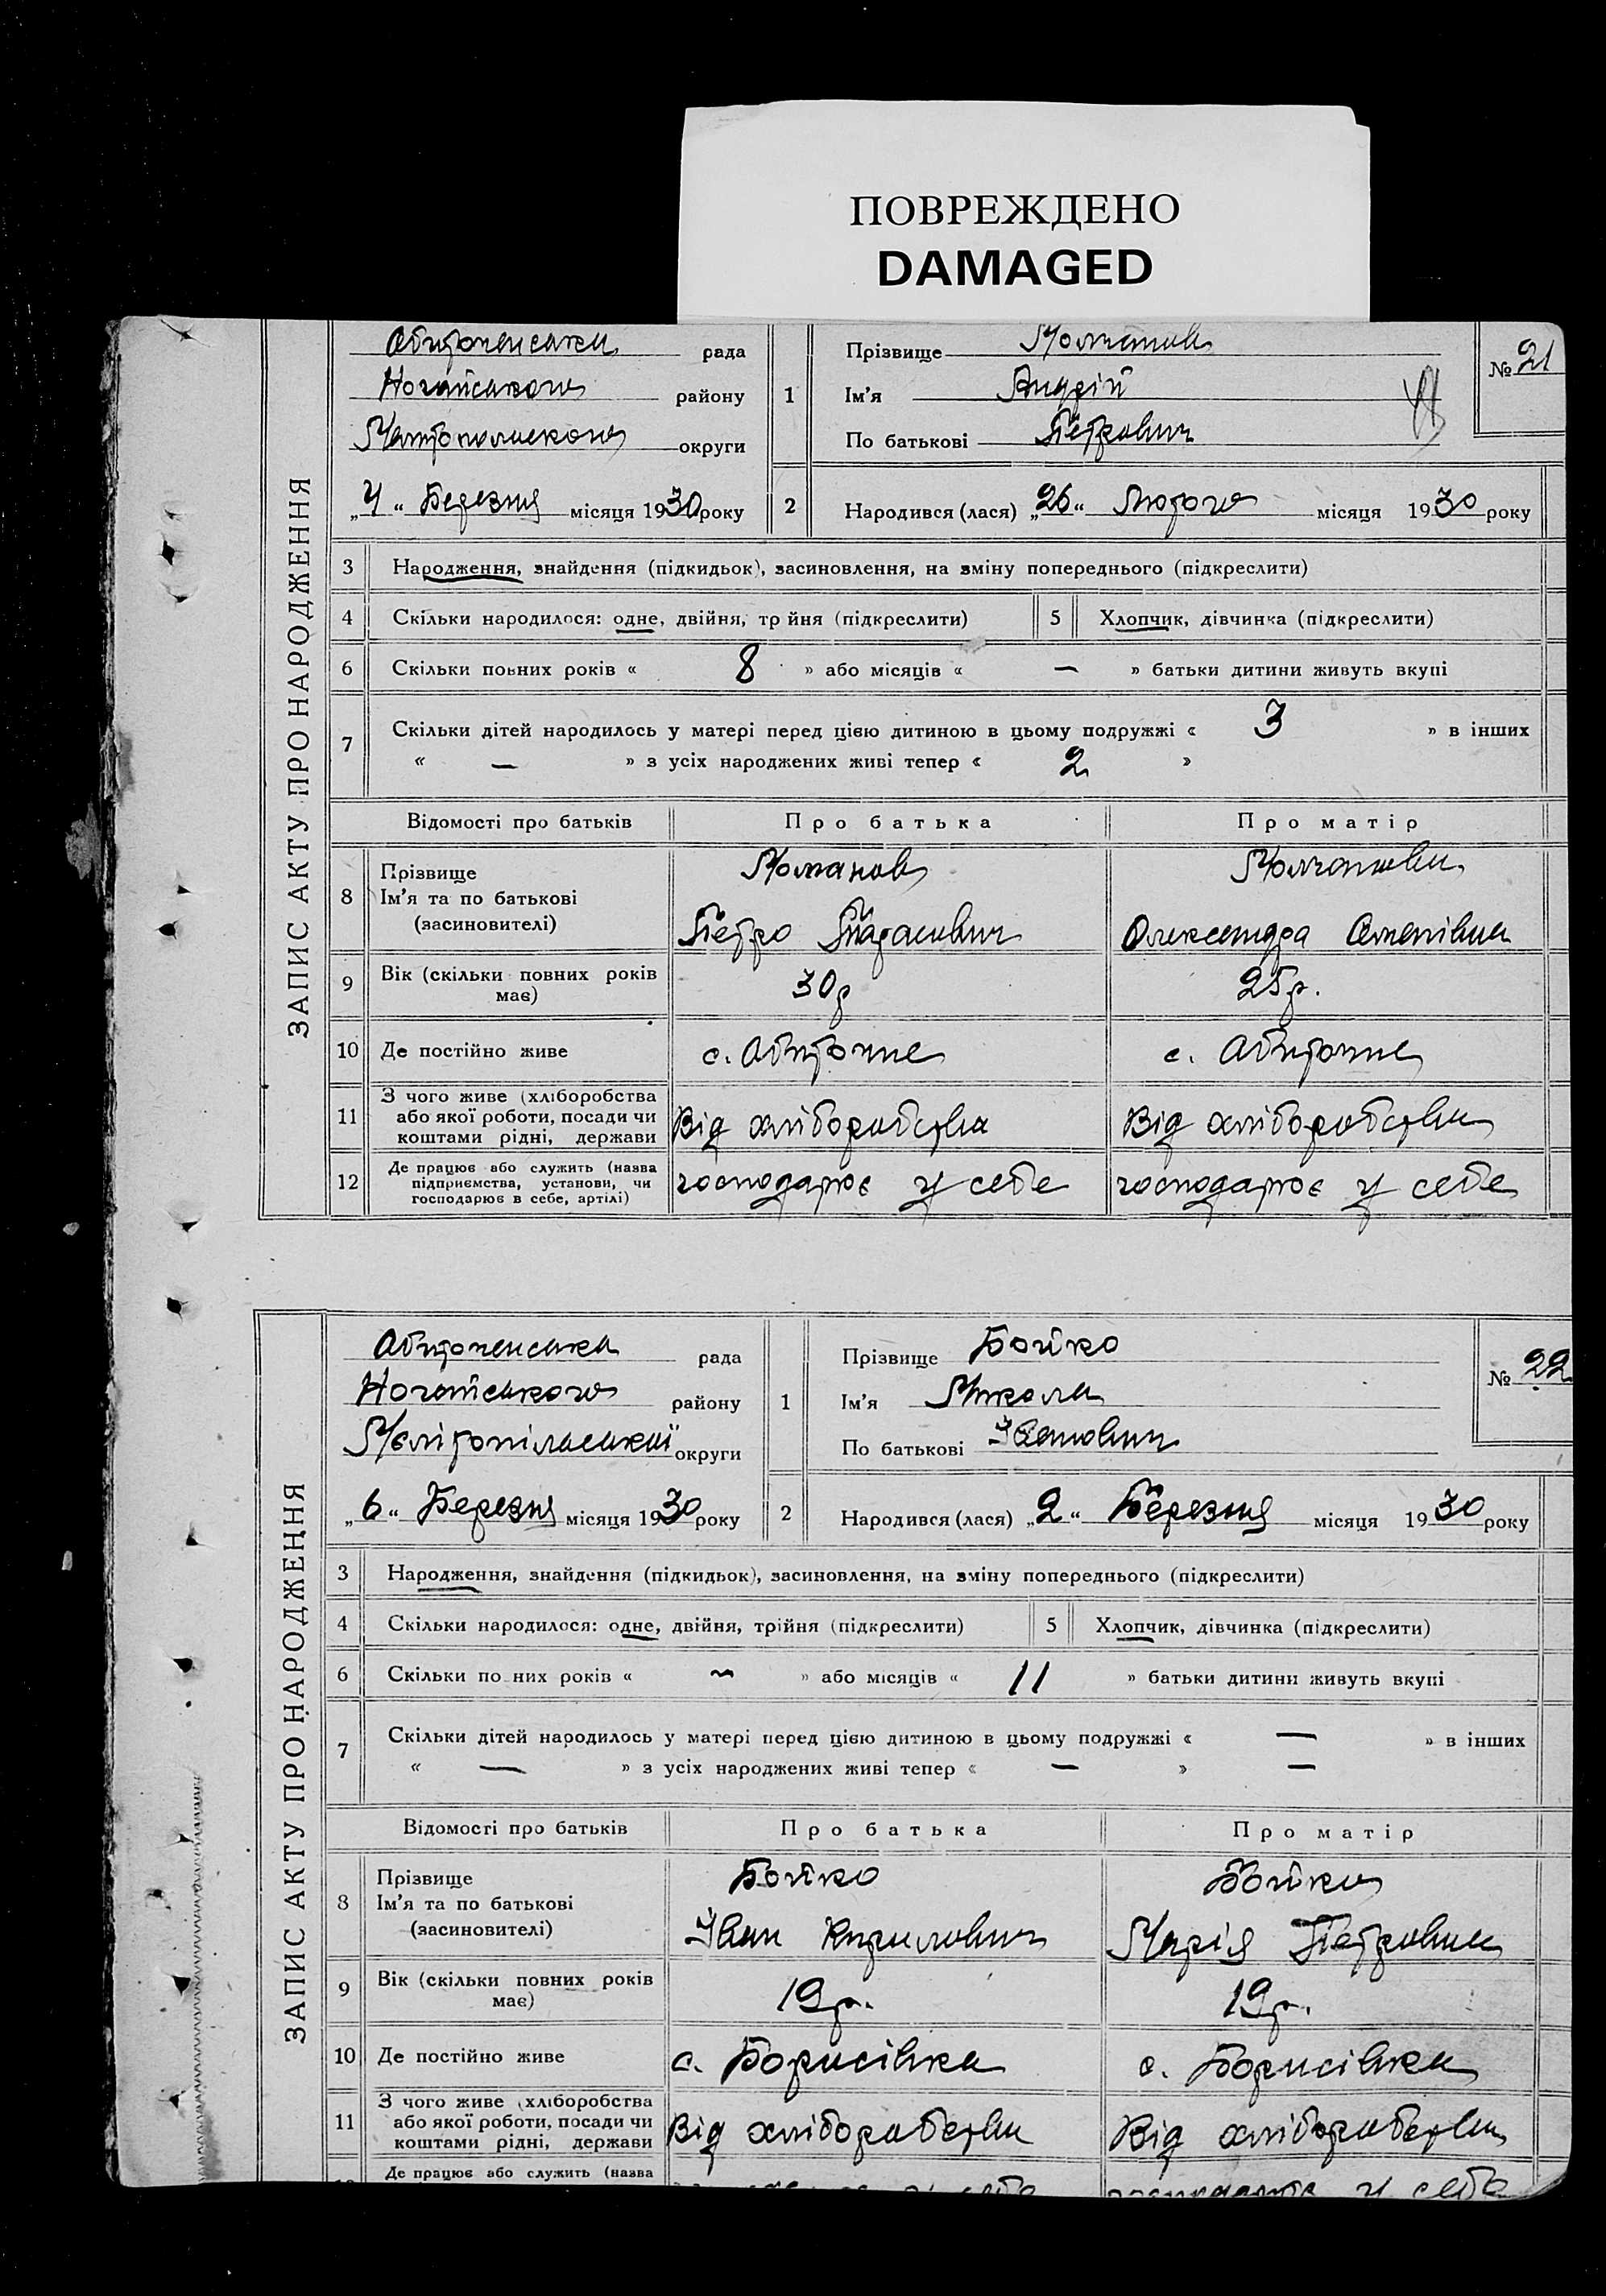 ПОВРЕЖДЕНО
DAMAGED
ЗАПИС АКТУ ПРО НАРОДЖЕННЯ
Обиточенська рада
Ногайського району
округи
„4“ Березня місяця 1930 року
1
Прізвище Молчанов
Ім'я Андрій
По батькові Петрович
№ 21
2
Народився (лася) „26“ Лютого місяця 1930 року
3 Народження, знайдення (підкидьок), засиновлення, на зміну попереднього (підкреслити)
4 Скільки народилося: одне, двійня, тр йня (підкреслити) 5 Хлопчик, дівчинка (підкреслити)
6 Скільки повних років « 8 » або місяців « — » батьки дитини живуть вкупі
7 Скільки дітей народилось у матері перед цією дитиною в цьому подружжі « 3 » в інших
« — » з усіх народжених живі тепер « 2 »
Відомості про батьків Про батька Про матір
8 Прізвище
Ім'я та по батькові
(засиновителі)
Молчанов
Петро Тарасович
Молчанова
Олександра Семенівна
9 Вік (скільки повних років
має)
30р
25р.
10 Де постійно живе с. Обиточне с. Обиточне
11 З чого живе (хліборобства
або якої роботи, посади чи
коштами рідні, держави
Від хліборобства
Від хліборобства
12 Де працює або служить (назва
підприємства, установи, чи
господарює в себе, артілі)
господарює у себе
господарює у себе
ЗАПИС АКТУ ПРО НАРОДЖЕННЯ
Обиточенська рада
Ногайського району
Мелітопільської округи
„6“ Березня місяця 1930 року
1
Прізвище Бойко
Ім'я Микола
По батькові Іванович
№ 22
2
Народився (лася) „2“ Березня місяця 1930 року
3 Народження, знайдення (підкидьок), засиновлення, на зміну попереднього (підкреслити)
4 Скільки народилося: одне, двійня, трійня (підкреслити) 5 Хлопчик, дівчинка (підкреслити)
6 Скільки по них років « ~ » або місяців « 11 » батьки дитини живуть вкупі
7 Скільки дітей народилось у матері перед цією дитиною в цьому подружжі « — » в інших
« — » з усіх народжених живі тепер « — » —
Відомості про батьків Про батька Про матір
8 Прізвище
Ім'я та по батькові
(засиновителі)
Бойко
Іван Кирилович
Бойко
Марія Петровна
9 Вік (скільки повних років
має)
19р.
19р.
10 Де постійно живе с. Борисівка с. Борисівка
11 З чого живе (хліборобства
або якої роботи, посади чи
коштами рідні, держави
Від хліборобства
Від хліборобства
Де працює або служить (назва
у себе
господарює у себе